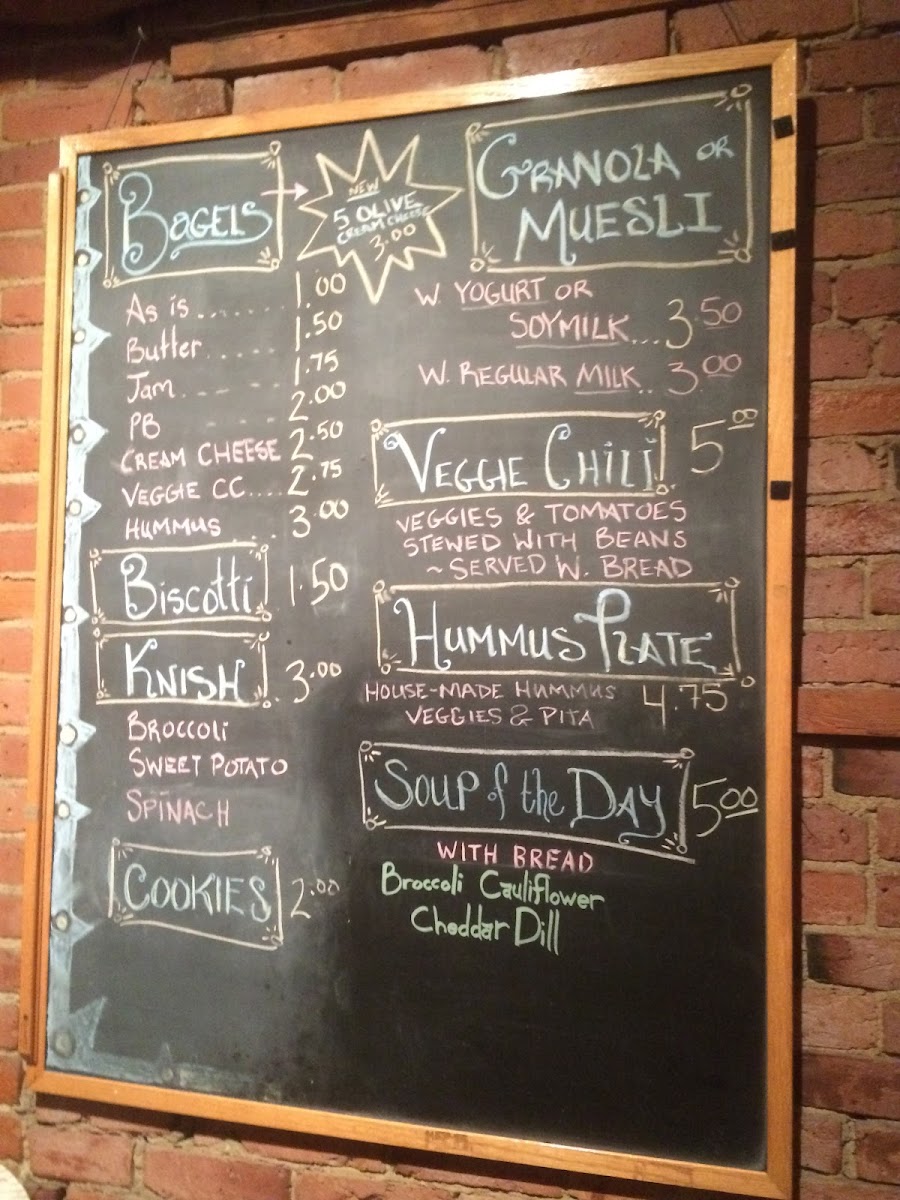 BAGELS
NEW
5 OLIVE
CREAM CHEESE
3.00
As is........ 1.00
Butter...... 1.50
Jam....... 1.75
PB 2.00
CREAM CHEESE 2.50
VEGGIE CC.... 2.75
HUMMUS .... 3.00
Biscotti 1.50
KNISH 3.00
BROCCOLI
SWEET POTATO
SPINACH
COOKIES 2.00
GRANOLA OR
MUESLI
W. YOGURT OR
SOYMILK... 3.50
W. REGULAR MILK.. 3.00
VEGGIE CHILI 5.00
VEGGIES & TOMATOES
STEWED WITH BEANS
~ SERVED W. BREAD
HUMMUS PLATE
HOUSE-MADE HUMMUS 4.75
VEGGIES & PITA
SOUP of the DAY 5.00
WITH BREAD
Broccoli Cauliflower
Cheddar Dill